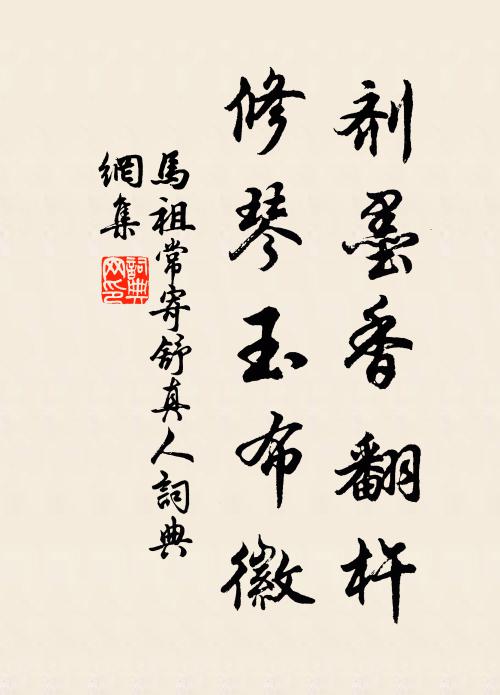 劑墨香翻杵
修琴玉布徽
馬祖常寄舒真人詞典
網集
詞典網印